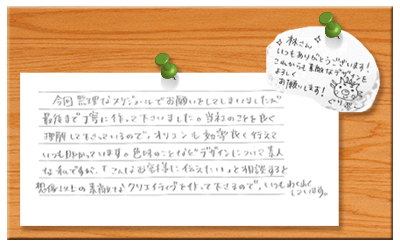 今回無理なスケジュールでお願いをしてしまいましたが
最後まで丁寧に作って下さいました。当社のことを良く
理解して下さっているので、オリコンも効率良く行えて
いつも助かっています。色味のことなどデザインについて素人
な私ですが、「こんなお客様に伝えたい」と相談すると
想像以上の素敵なクリエイティブを作って下さるので、いつもわくわく
しています。
☆林さん☆
いつもありがとうございます!
これからも素敵なデザインを
よろしく
お願いします!